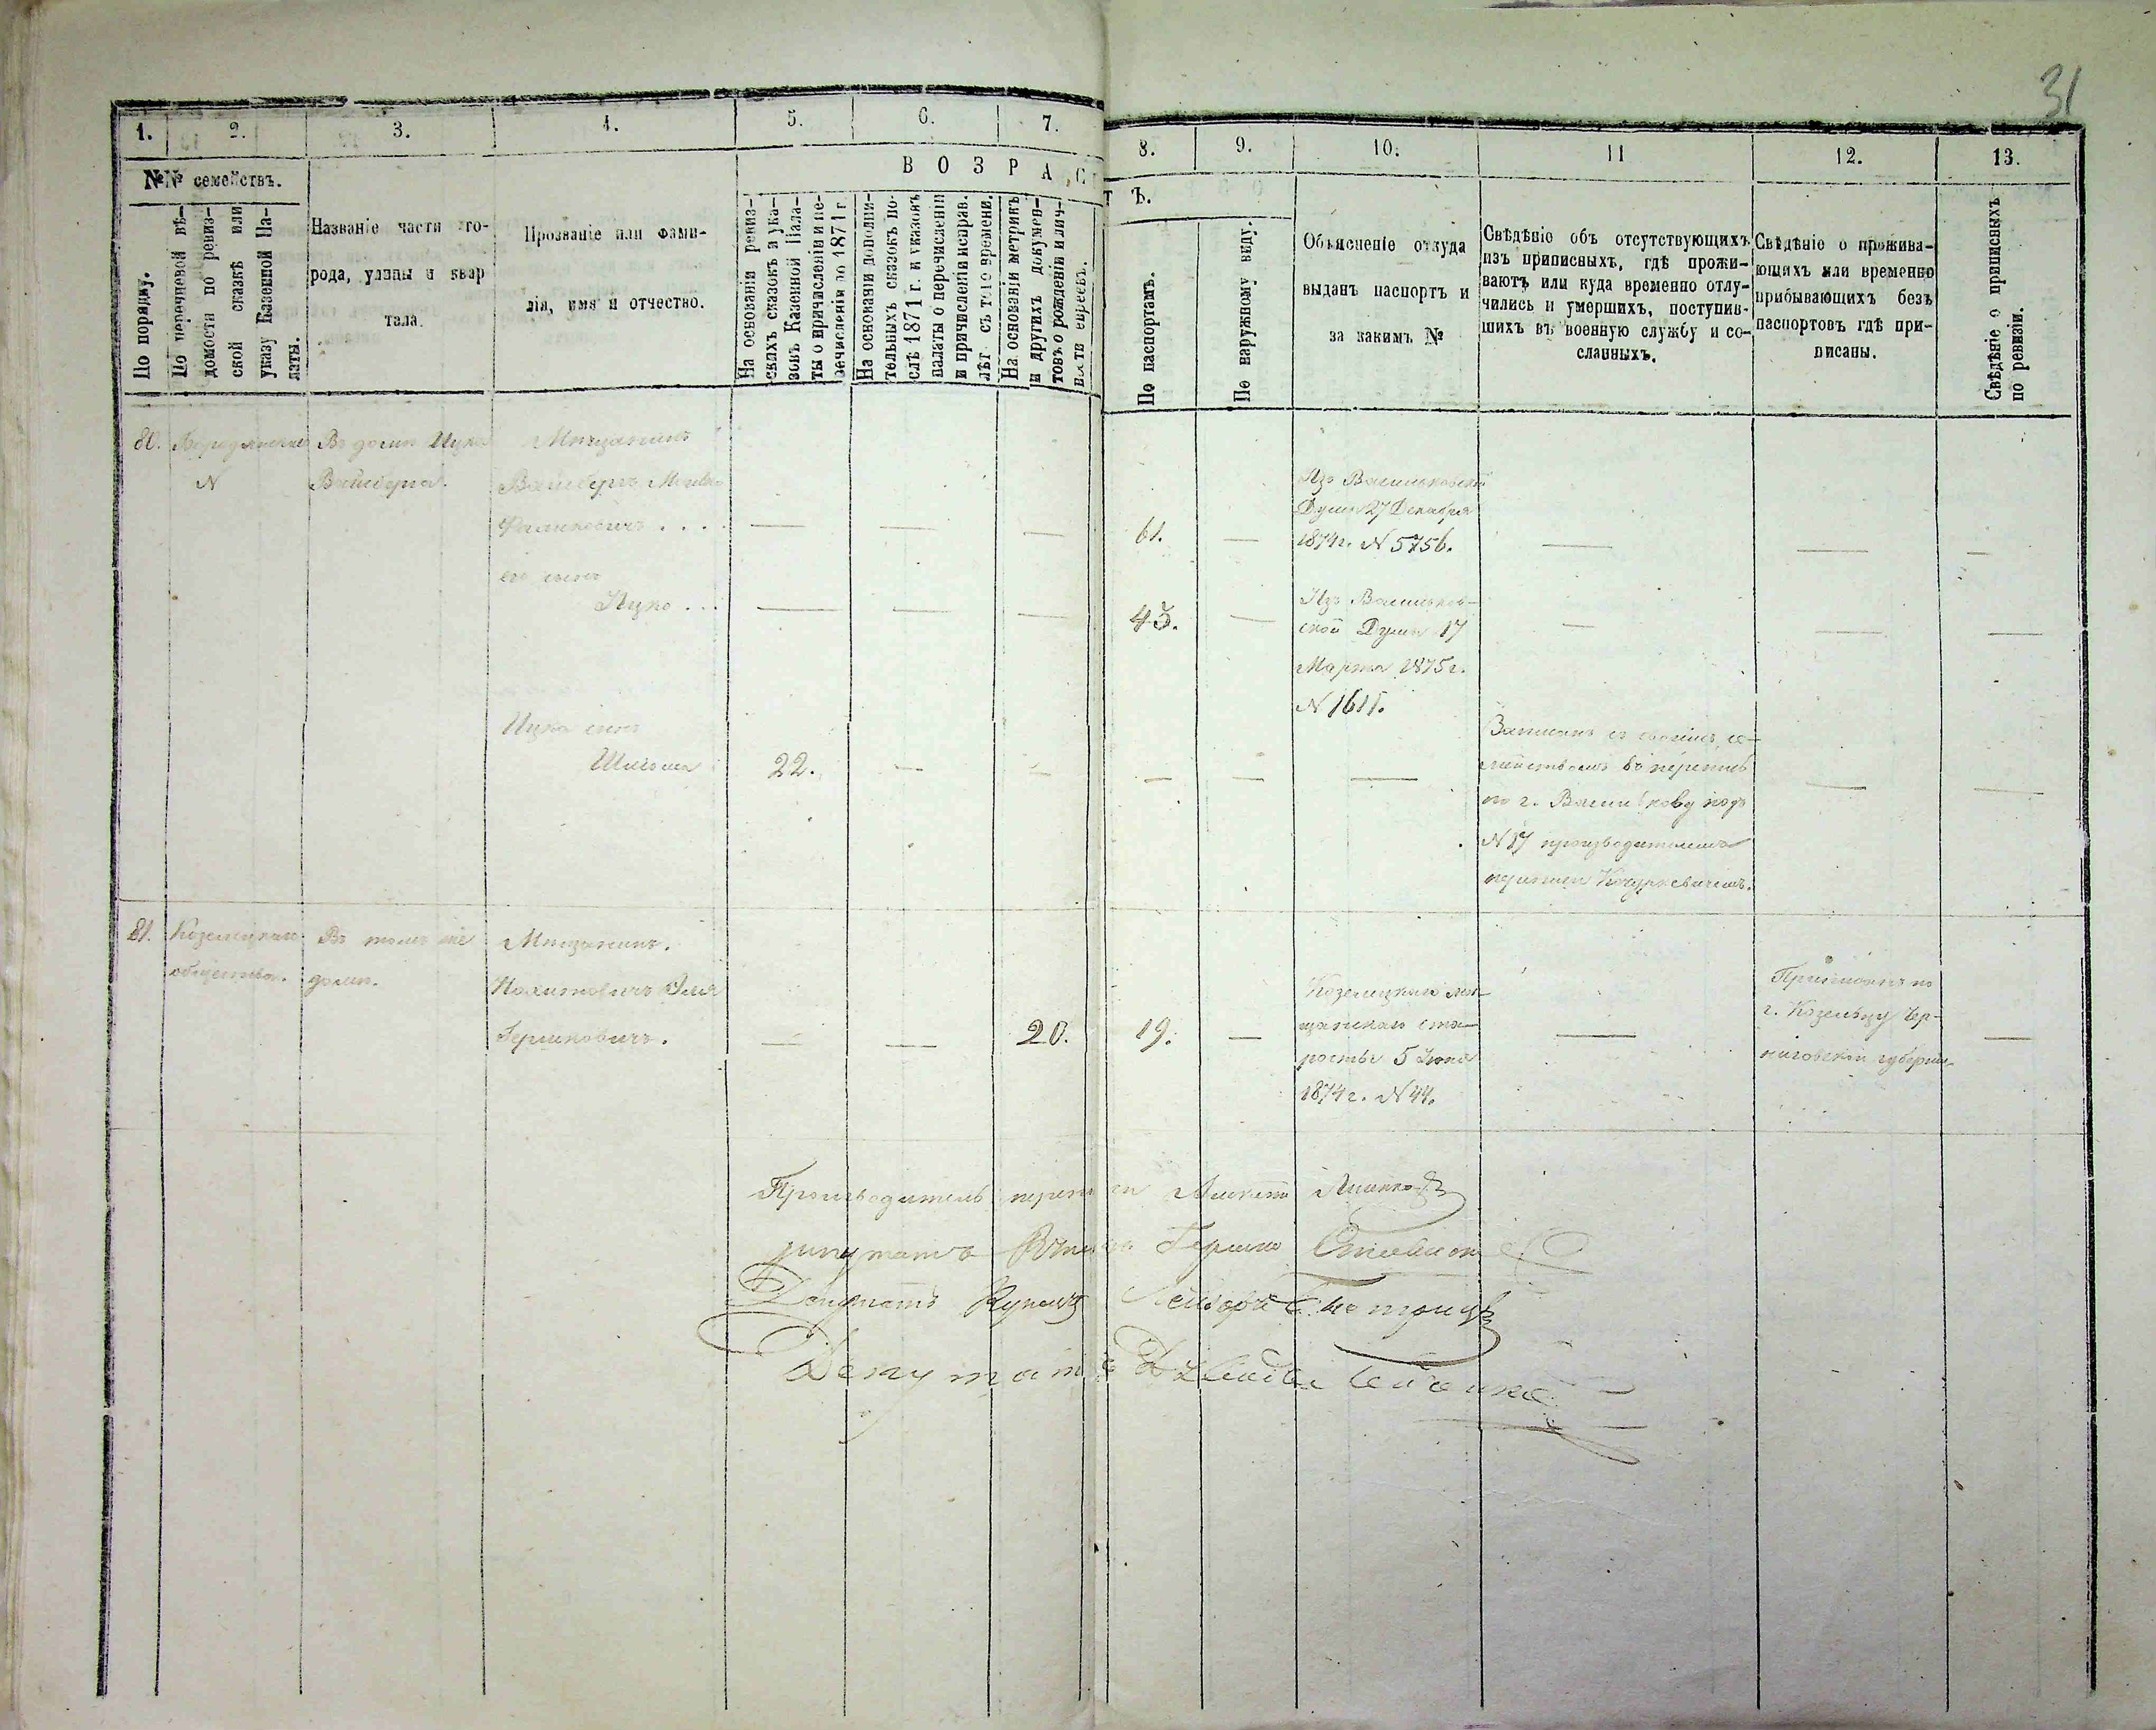 31
1. 2. 3. 4. 5. 6. 7. 8. 9. 10. 11 12. 13.
№№ семействъ.
В О З Р А С Т Ъ.
По порядку.
По перечневой вѣ-
домости по ревиз-
ской сказкѣ или
указу Казенной Па-
латы.
Названіе части го-
рода, улицы и квар
тала.
Прозваніе или фами-
лія, имя и отчество.
На основаніи ревиз-
скихъ сказокъ и ука-
зовъ Казенной Пала-
ты о причисленіи и пе-
речисленіи по 1871 г.
На основаніи дополни-
тельныхъ сказокъ по-
слѣ 1871 г. и указовъ
палаты о перечисленіи
и причисленіи и справ.
лѣт съ того времени.
На основаніи метрикъ
и другихъ докумен-
товъ о рожденіи и лич-
ности евреевъ.
По паспортамъ.
По наружному виду.
Объясненіе откуда
выданъ паспортъ и
за какимъ №
Свѣдѣніе объ отсутствующихъ
изъ приписныхъ, гдѣ прожи-
ваютъ или куда временно отлу-
чились и умершихъ, поступив-
шихъ въ военную службу и со-
сланныхъ.
Свѣдѣніе о прожива-
ющихъ или временно
прибывающихъ безъ
паспортовъ гдѣ при-
писаны.
Свѣдѣніе о приписныхъ
по ревизіи.
80.
N
Въ домѣ Ицка
Вайсберга.
Мѣщанинъ
Вайсбергъ Мошко
Фаликовичъ . . . .
61.
Изъ Васильковской
Думы 27 Декабря
1874г. N 5756.
его сынъ
Ицко . . .
43.
Изъ Васильков-
ской Думы 17
Марта 1875г.
N 1611.
Ицка сынъ
22.
Записанъ съ своимъ се-
мействомъ въ перепись
по г. Василькову подъ
N 17 производителемъ
переписи
81.
Козелецкаго
общества.
Въ томъ же
домѣ.
Мѣщанинъ.
Гершковичъ.
20.
19.
Козелецкаго мѣ-
щанскаго ста-
росты 5 Іюня
1874г. N 44.
Приписанъ по
г. Козельцу Чер-
ниговской губерніи
Производитель переписи
Депутатъ Купецъ
Депутатъ